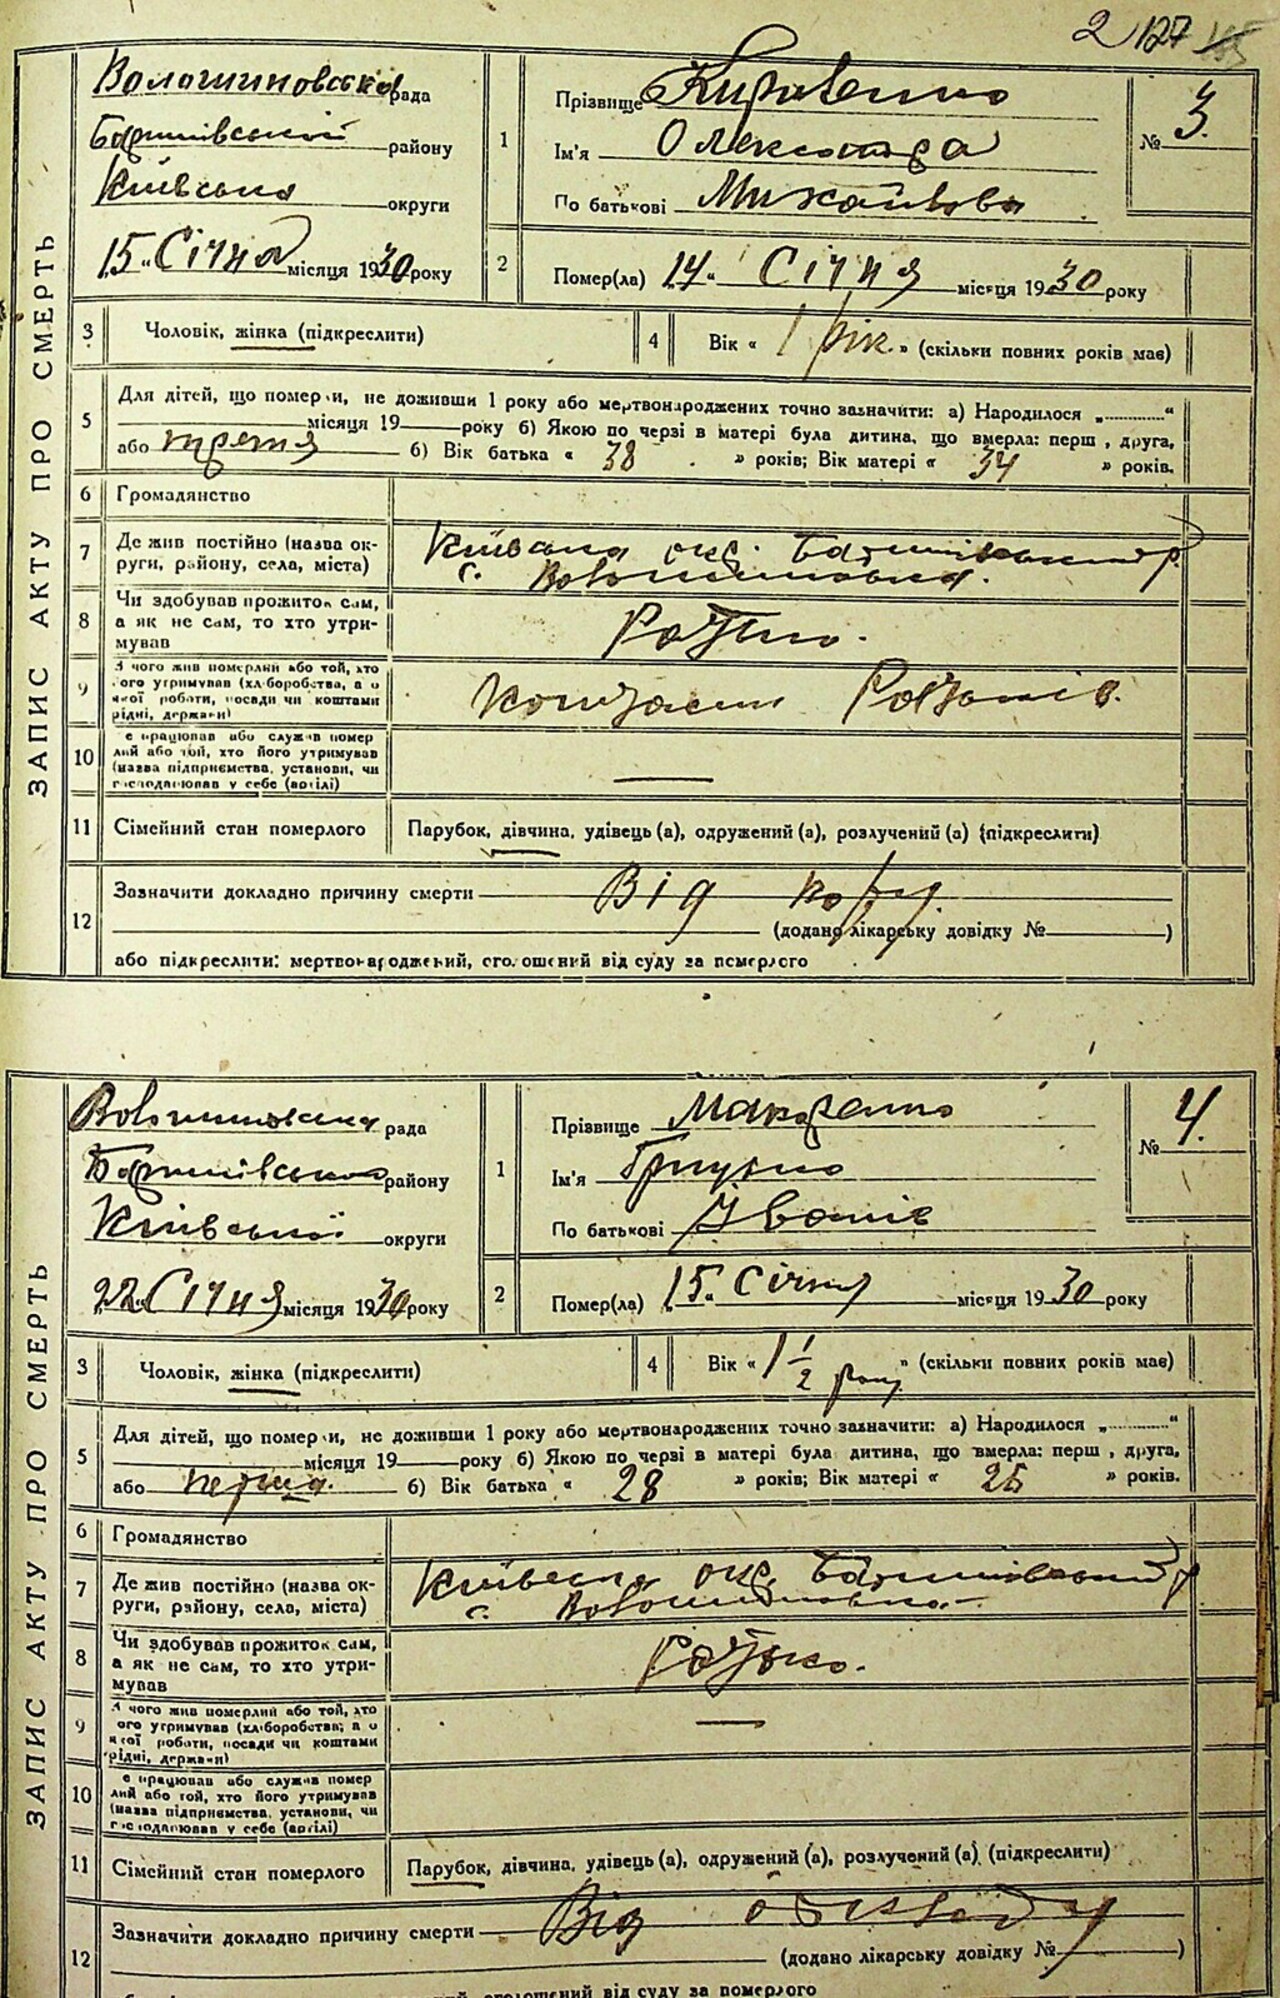 2 127
ЗАПИС АКТУ ПРО СМЕРТЬ
Волошиновська рада
Баришівський району
Київська округи
15 „ Січня місяця 1930 року
1
Прізвище
Ім'я Олександра
По батькові Михайлова
№ 3.
2
Помер(ла) 14 „ Січня місяця 1930 року
3 Чоловік, жінка (підкреслити)
4 Вік « 1 рік. » (скільки повних років має)
5
Для дітей, що померли, не доживши 1 року або мертвонароджених точно зазначити: а) Народилося „............“
місяця 19 року б) Якою по черзі в матері була дитина, що вмерла: перш , друга,
або третя б) Вік батька « 38 » років; Вік матері « 34 » років.
6 Громадянство
7 Де жив постійно (назва ок-
руги, району, села, міста)
Київська окр. Баришівський р.
с. Волошиновка.
8 Чи здобував прожиток сам,
а як не сам, то хто утри-
мував
Батько.
9 З чого жив померлий або той, хто
ого утримував (хліборобства, а о
якої роботи, посади чи коштами
рідні, держави)
Коштами
10 е працював або служив помер
лий або той, хто його утримував
(назва підприємства, установи, чи
господарював у себе (артілі)
—
11 Сімейний стан померлого Парубок, дівчина, удівець (а), одружений (а), розлучений (а) (підкреслити)
12 Зазначити докладно причину смерти Від кору.
(додано лікарську довідку № )
або підкреслити: мертвонароджений, оголошений від суду за померлого
ЗАПИС АКТУ ПРО СМЕРТЬ
Волошиновська рада
Баришівського району
Київської округи
22 „ Січня місяця 1930 року
1
Прізвище Макаренко
Ім'я Грицько
По батькові Іванів
№ 4.
2
Помер(ла) 15 „ Січня місяця 1930 року
3 Чоловік, жінка (підкреслити)
4 Вік « 1 1/2 року » (скільки повних років має)
5
Для дітей, що померли, не доживши 1 року або мертвонароджених точно зазначити: а) Народилося „............“
місяця 19 року б) Якою по черзі в матері була дитина, що вмерла: перш , друга,
або перша. б) Вік батька « 28 » років; Вік матері « 25 » років.
6 Громадянство
7 Де жив постійно (назва ок-
руги, району, села, міста)
Київська окр. Баришівський р
с. Волошиновка
8 Чи здобував прожиток сам,
а як не сам, то хто утри-
мував
Батько.
9 З чого жив померлий або той, хто
ого утримував (хліборобства; а о
якої роботи, посади чи коштами
рідні, держави)
—
10 е працював або служив помер
лий або той, хто його утримував
(назва підприємства, установи, чи
господарював у себе (артілі)
11 Сімейний стан померлого Парубок, дівчина, удівець (а), одружений (а), розлучений (а) (підкреслити)
12 Зазначити докладно причину смерти Від
(додано лікарську довідку № )
оголошений від суду за померлого